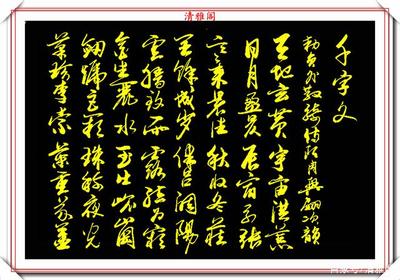 清雅阁
千字文
勅員外散騎侍郎周興嗣次韻
天地玄黄宇宙洪荒
日月盈昃辰宿列張
寒来暑往秋收冬藏
閏餘成歲律吕調陽
雲騰致雨露結為霜
金生麗水玉出崑崗
劍號巨闕珠稱夜光
菓珍李柰菜重芥薑